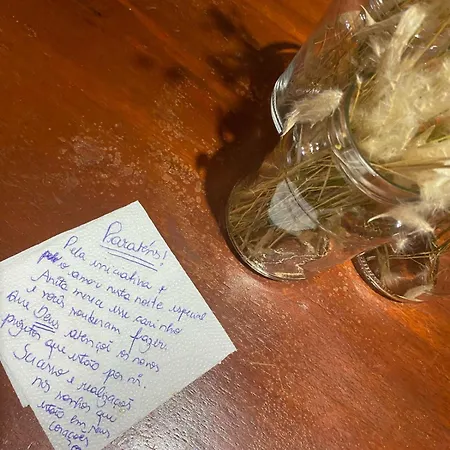 Parabéns!
Pela iniciativa e
o amor nesta noite especial
Anita merece esse carinho
e vocês souberam fazer.
que Deus abençoe os novos
projetos que estão por vir.
Sucesso e realizações
nos sonhos que
estão em seus
corações